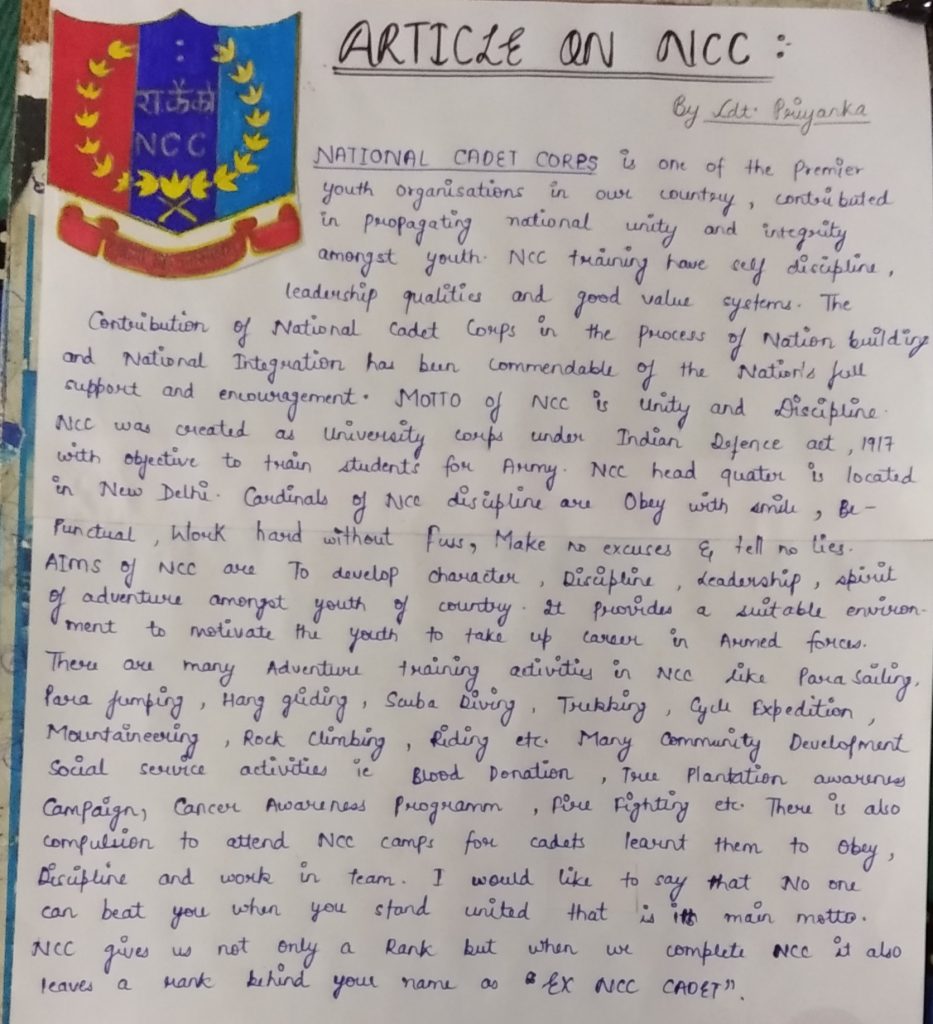 ARTICLE ON NCC :
राकैको
NCC
By Cdt. Priyanka
NATIONAL CADET CORPS is one of the Premier
youth organisations in our country, contributed
in propagating national unity and integrity
amongst youth. NCC training have self discipline,
leadership qualities and good value systems. The
Contribution of National Cadet Corps in the process of Nation building
and National Integration has been commendable of the Nation's full
support and encouragement. MOTTO of NCC is Unity and Discipline.
NCC was created as University corps under Indian Defence act, 1917
with objective to train students for Army. NCC head quater is located
in New Delhi. Cardinals of NCC discipline are Obey with smile, Be-
Punctual, Work hard without fuss, Make no excuses & tell no lies.
AIMS of NCC are To develop character, Discipline, Leadership, spirit
of adventure amongst youth of country. It Provides a suitable environ-
ment to motivate the youth to take up career in Armed forces.
There are many Adventure training activities in NCC like Para Sailing,
Para Jumping, Hang gliding, Scuba Diving, Trekking, Cycle Expedition,
Mountaineering, Rock Climbing, Riding etc. Many Community Development
Social service activities ie Blood Donation, Tree Plantation awareness
Campaign, Cancer Awareness Programm, Fire Fighting etc. There is also
compulsion to attend NCC camps for cadets learnt them to Obey,
Discipline and work in team. I would like to say that No one
can beat you when you stand united that is its main motto.
NCC gives us not only a Rank but when we complete NCC it also
leaves a rank behind your name as "EX NCC CADET".